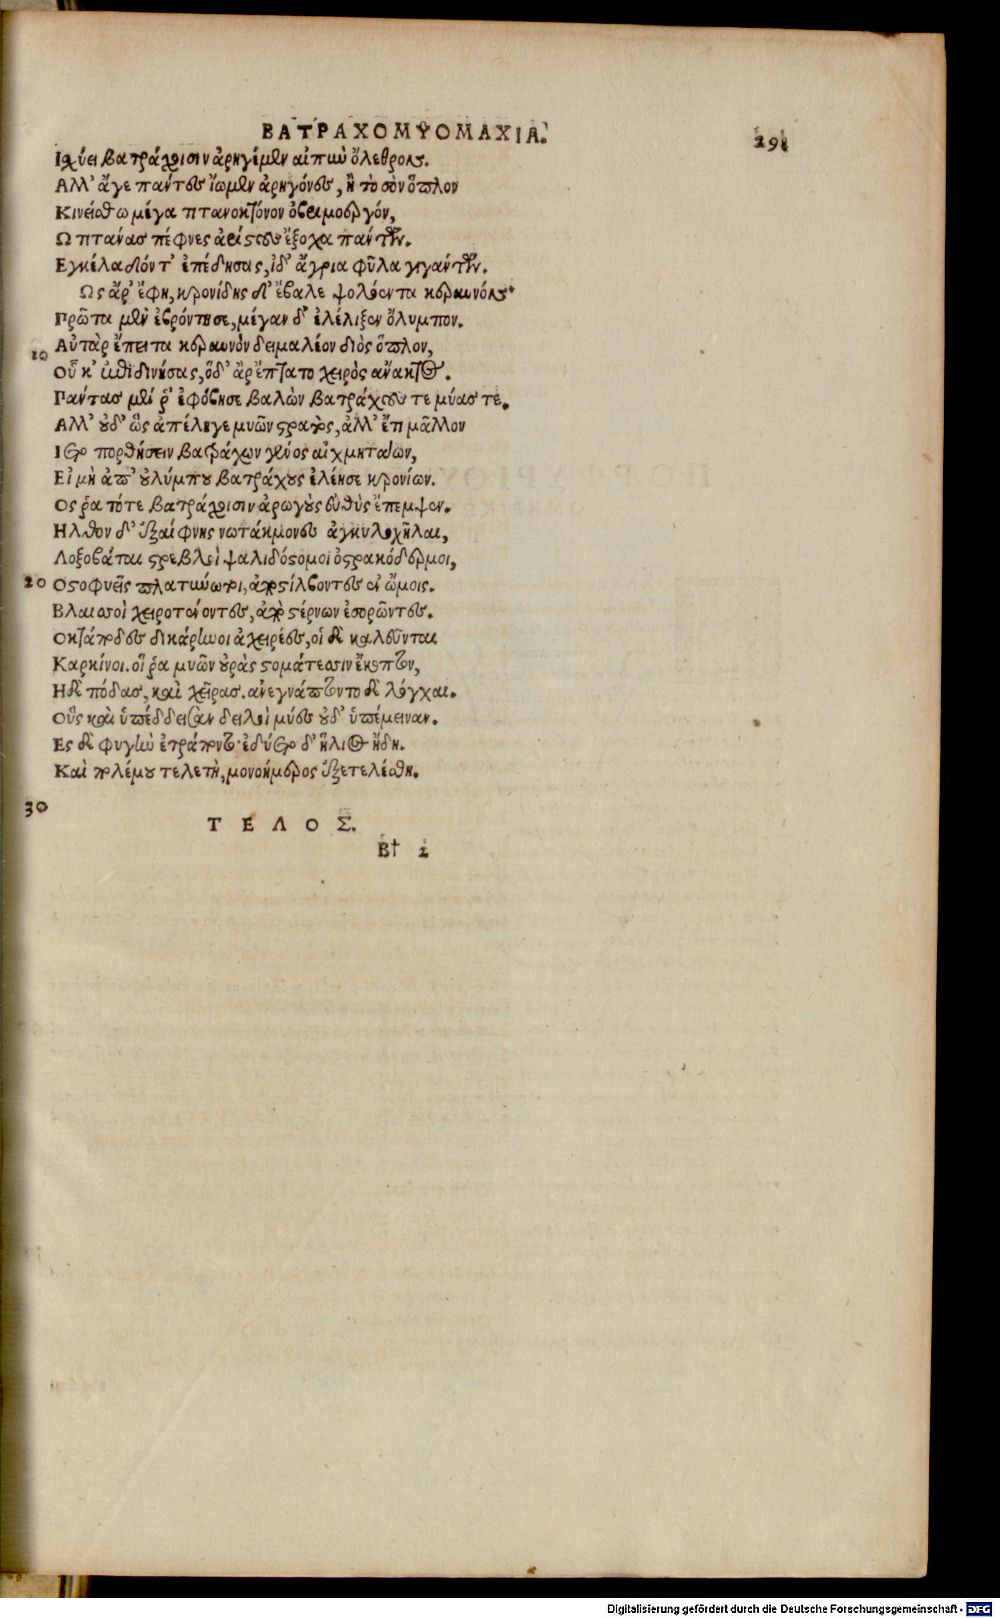 ΒΑΤΡΑΧΟΜΥΟΜΑΧΙΑ. 291
Ισχύει βατράχοισιν ἀρηγέμεν αἰπὺν ὄλεθρον.
Αλλ' ἄγε πάντες ἴωμεν ἀρηγόνες, ἢ τὸ σὸν ὅπλον
Κινείσθω μέγα τιτανοκτόνον ὀβριμοεργόν,
Ω τιτάνας πέφνες ἀρίστους ἔξοχα πάντων.
Εγκέλαδόν τ' ἐπέδησας, ἰδ' ἄγρια φῦλα γιγάντων.
Ως ἄρ' ἔφη, κρονίδης δ' ἔβαλε ψολόεντα κεραυνόν.
Πρῶτα μὲν ἐβρόντησε, μέγαν δ' ἐλέλιξεν ὄλυμπον.
Αὐτὰρ ἔπειτα κεραυνὸν δειμαλέον διὸς ὅπλον,
10
Οὗ κ' ἐπιδινήσας, ὅδ' ἄρ' ἔπτατο χειρὸς ἄνακτος.
Πάντας μέν ῥ' ἐφόβησε βαλὼν βατράχους τε μύας τε.
Αλλ' οὐδ' ὣς ἀπέληγε μυῶν στρατὸς, ἀλλ' ἔτι μᾶλλον
Ιετο πορθήσειν βατράχων γένος αἰχμητάων,
Εἰ μὴ ἀπ' οὐλύμπου βατράχους ἐλέησε κρονίων.
Ος ῥα τότε βατράχοισιν ἀρωγοὺς εὐθὺς ἔπεμψεν.
Ηλθον δ' ἐξαίφνης νωτάκμονες ἀγκυλοχῆλαι,
Λοξοβάται στρεβλοὶ ψαλιδόστομοι ὀστρακόδερμοι,
20 Οστοφυεῖς πλατυνώτοι, ἀποστίλβοντες ἐν ὤμοις.
Βλαισσοὶ χειροτένοντες, ἀπὸ στέρνων ἐσορῶντες.
Οκτάποδες δικάρηνοι ἀχειρέες, οἱ δὲ καλεῦνται
Καρκίνοι. οἵ ῥα μυῶν οὐρὰς στομάτεσσιν ἔκοπτον,
Ηδὲ πόδας, καὶ χεῖρας. ἀνεγνάπτοντο δὲ λόγχαι.
Οὓς καὶ ὑπέδδεισαν δειλοὶ μύες οὐδ' ὑπέμειναν.
Ες δὲ φυγὴν ἐτράποντο· ἐδύετο δ' ἥλιος ἤδη.
Καὶ πολέμου τελετὴ, μονοήμερος ἐξετελέσθη.
30
ΤΕΛΟΣ.
B† 2
Digitalisierung gefördert durch die Deutsche Forschungsgemeinschaft - DFG